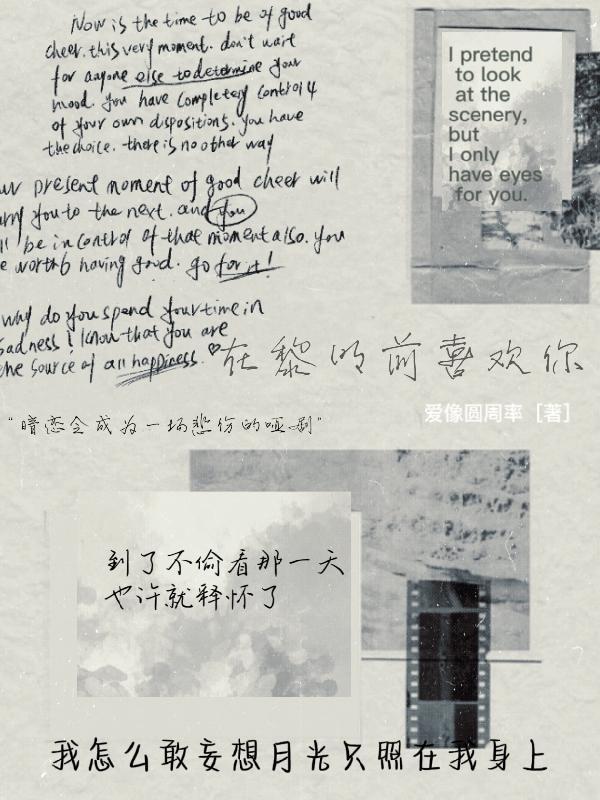 Now is the time to be of good
cheer. this very moment. don't wait
for anyone else to determine your
mood. you have completely control 4
of your own dispositions. you have
the choice. there is no other way
ur present moment of good cheer will
arry you to the next. and you
ll be in control of that moment also. you
e worth6 having good. go for it!
why do you spend your time in
sadness! know that you are
the source of all happiness.
I pretend
to look
at the
scenery,
but
I only
have eyes
for you.
在黎明前喜欢你
爱像圆周率［著］
"暗恋会成为一场悲伤的哑剧"
到了不偷看那一天
也许就释怀了
我怎么敢妄想月光只照在我身上